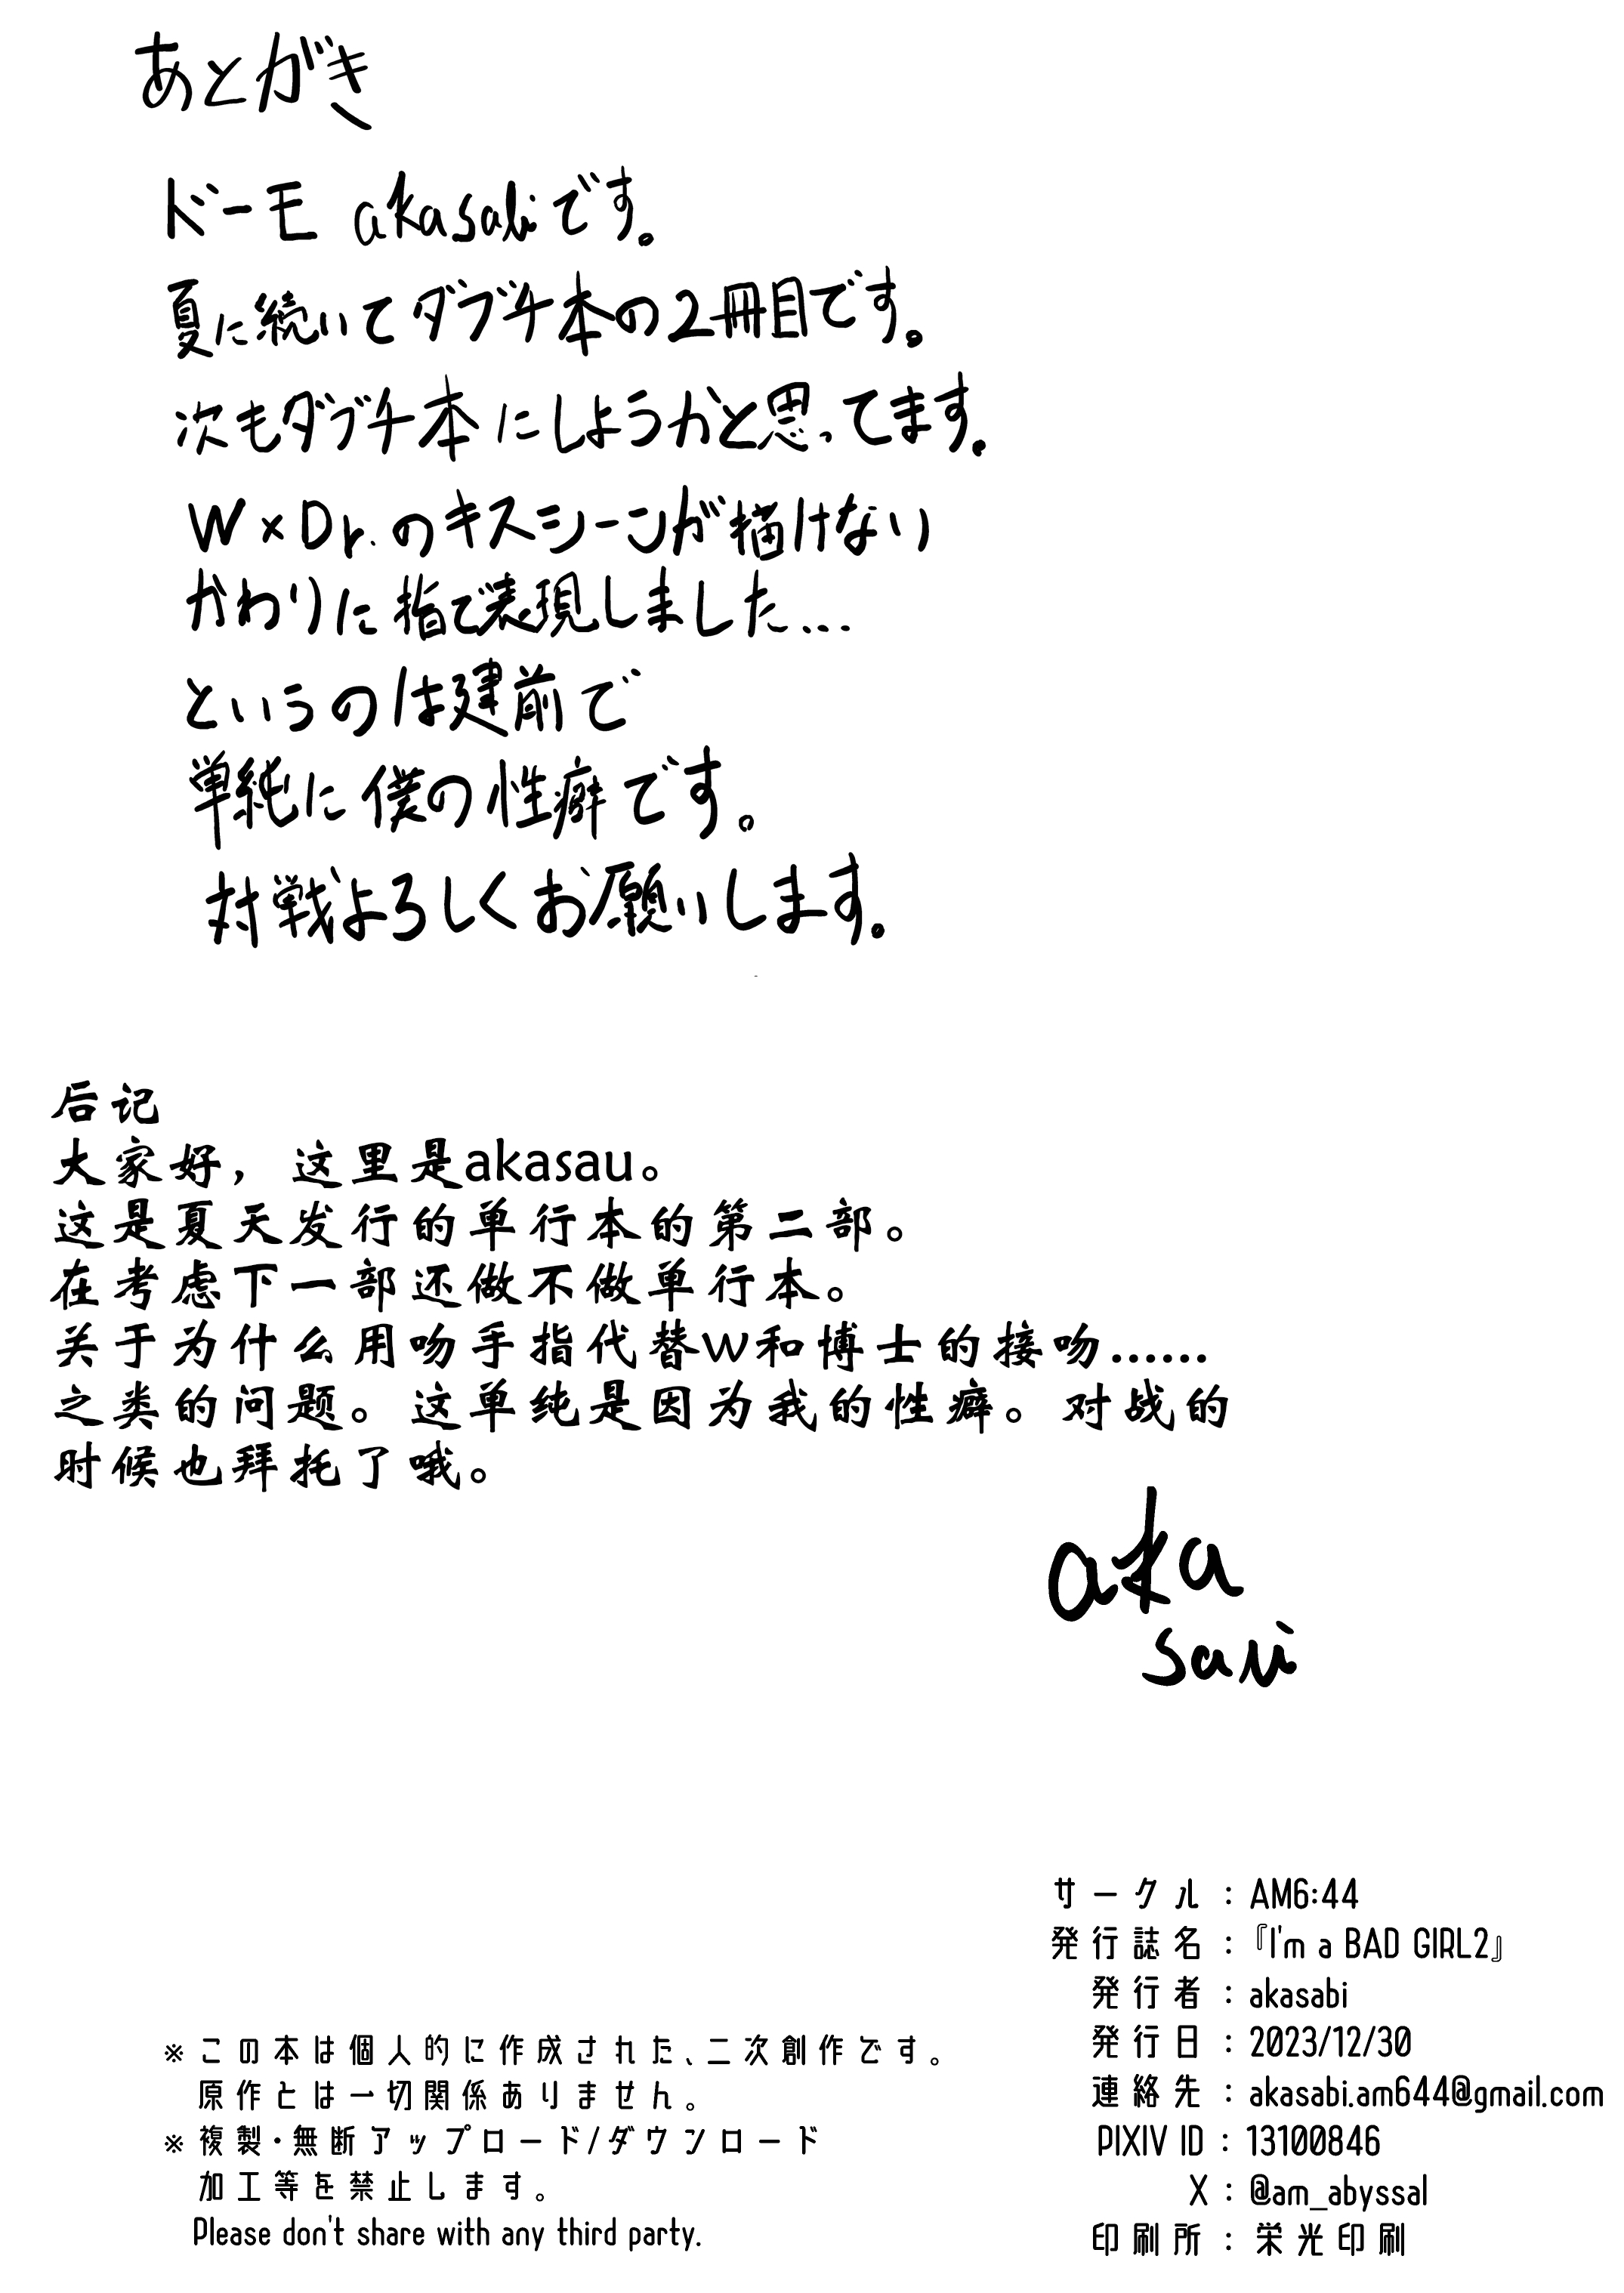 あとがき
ドーモ akasabiです。
夏に続いてダブチ本の2冊目です。
次もダブチ本にしようかと思ってます。
W×Dr.のキスシーンが描けない
かわりに指で表現しました...
というのは建前で
単純に僕の性癖です。
対戦よろしくお願いします。
后记
大家好，这里是akasau。
这是夏天发行的单行本的第二部。
在考虑下一部还做不做单行本。
关于为什么用吻手指代替W和博士的接吻……
之类的问题。这单纯是因为我的性癖。对战的
时候也拜托了哦。
aka
sabi
サークル：AM6:44
発行誌名：『I'm a BAD GIRL2』
発行者：akasabi
発行日：2023/12/30
連絡先：akasabi.am644@gmail.com
PIXIV ID：13100846
X：@am_abyssal
印刷所：栄光印刷
※この本は個人的に作成された、二次創作です。
原作とは一切関係ありません。
※複製・無断アップロード/ダウンロード
加工等を禁止します。
Please don't share with any third party.